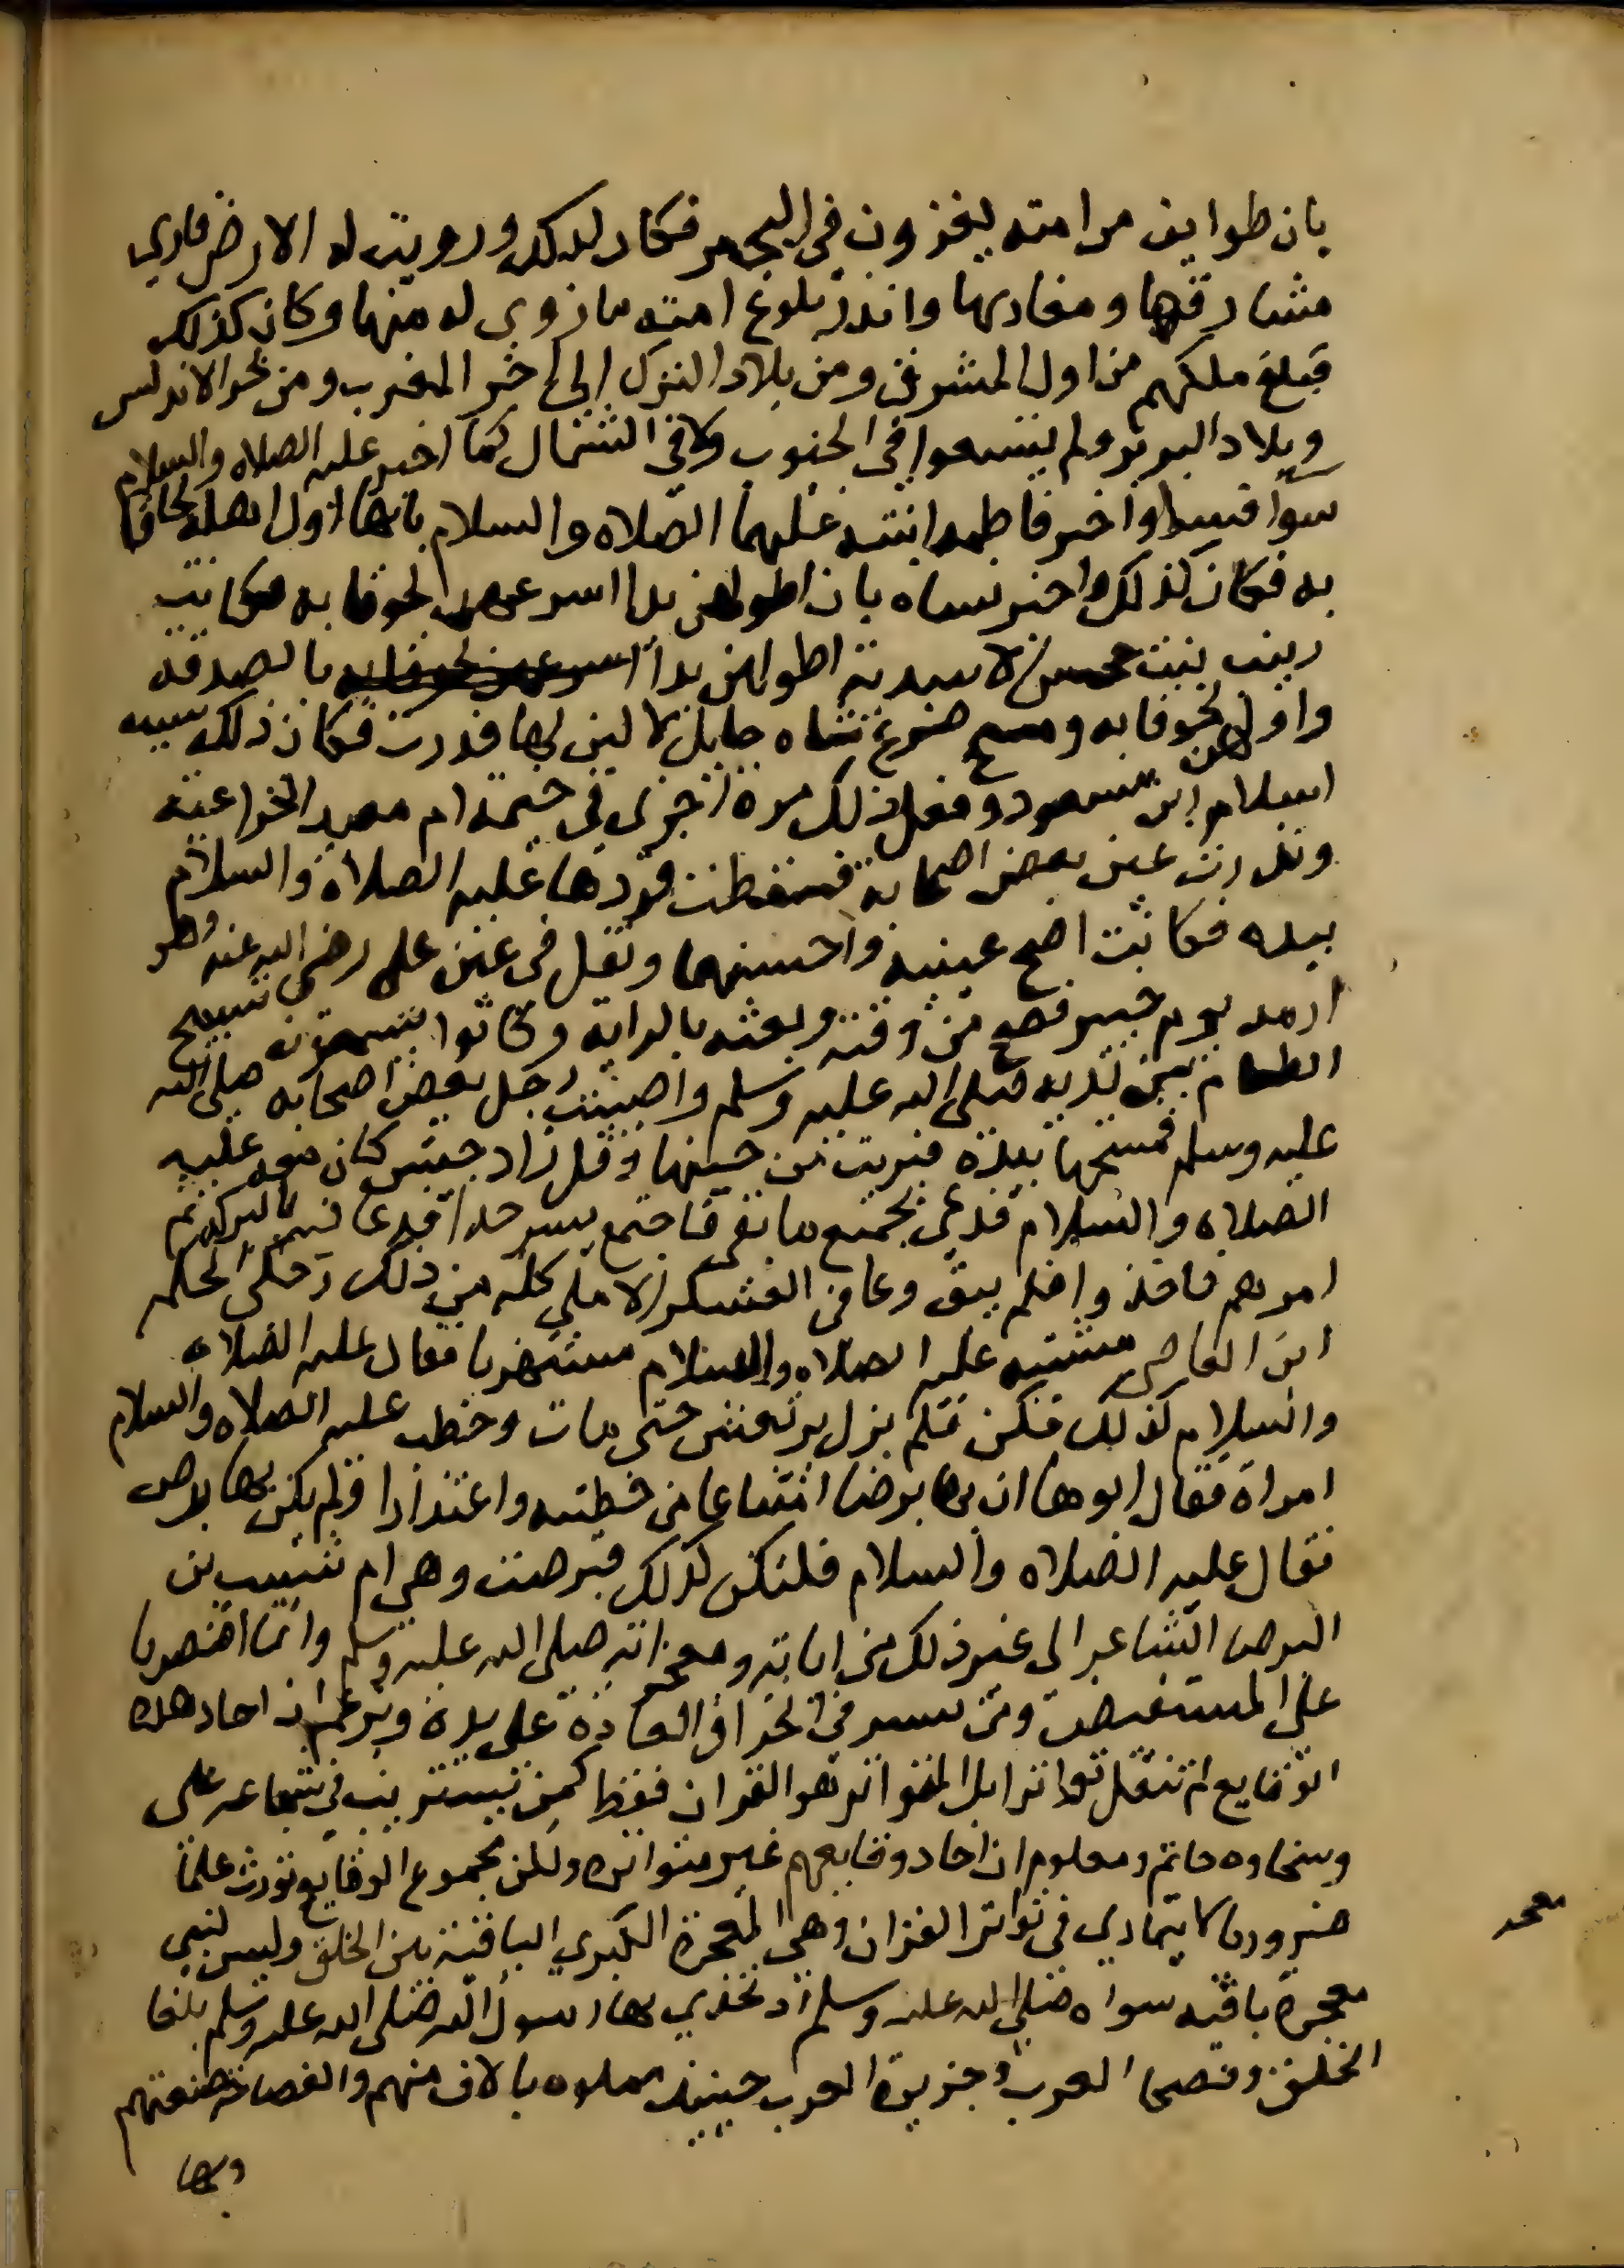 بان طوايف من امته يغزون في البحر فكان كذلك وزويت له الارض فاري
مشارقها ومغاربها وانذر بلوغ امته ما زوي له منها وكان كذلك
فبلغ ملكهم من اول المشرق ومن بلاد الترك الى اخر المغرب ومن بحر الاندلس
وبلاد البربر ولم يتسعوا في الجنوب ولا في الشمال كما اخبر عليه الصلاه والسلام
سوا بسوا واخبر فاطمه ابنته عليهما الصلاه والسلام بانها اول اهله لحاقا
به فكان كذلك واخبر نساه بان اطولهن يدا اسرعهن لحوقا به فكانت
زينب بنت جحش الاسدية اطولهن يدا اسرعهن لحوقا به بالصدقه
واولهن لحوقا به ومسح ضرع شاه حايل لا لبن لها فدرت فكان ذلك سبب
اسلام ابن مسعود وفعل ذلك مرة اخرى في خيمة ام معبد الخزاعية
وندرت عين بعض اصحابه فسقطت فردها عليه الصلاة والسلام
بيده فكانت اصح عينيه واحسنهما وتفل في عين علي رضي الله عنه وهو
ارمد يوم خيبر فصح من وقته وبعثه بالراية وكانوا يسمعون تسبيح
الطعام بين يديه صلى الله عليه وسلم واصيبت رجل بعض اصحابه صلى الله
عليه وسلم فمسحها بيده فبريت من حينها وقل زاد جيش كان معه عليه
الصلاه والسلام فدعى بجميع ما بقي فاجتمع يسير جدا فدعا فيه بالبركه ثم
امرهم فاخذوا فلم يبق وعا في العسكر الا ملي كله من ذلك وحكى الحكم
ابن العاصي مشيته عليه الصلاه والسلام مستهزيا فقال عليه الصلاه
والسلام كذلك فكن فلم يزل يرتعش حتى مات وخطب عليه الصلاه والسلام
امراة فقال ابوها ان بها برصا امتناعا من خطبته واعتذارا ولم يكن بها برص
فقال عليه الصلاه والسلام فلتكن كذلك فبرصت وهي ام شبيب بن
البرصا الشاعر الى غير ذلك من اياته ومعجزاته صلى الله عليه وسلم وانما اقتصرنا
على المستفيض ومن يستريب في انخراق العادة على يده ويزعم ان احاد هذه
الوقايع لم تنقل تواترا بل المتواتر هو القران فقط كمن يستريب في شجاعه علي
وسخاوه حاتم ومعلوم ان احاد وقايعهم غير متواتره ولكن مجموع الوقايع تورث علما
ضروريا لا يتمارى في تواتر القران وهي المعجزة الكبري الباقية بين الخلق وليس لنبي
معجزة باقيه سواه صلى الله عليه وسلم اذ تحدي بها رسول الله صلى الله عليه وسلم بلغا
الخلق وفصحا العرب وجزيرة العرب حينيذ مملوه بالاف منهم والفصاحة صنعتهم
وبها